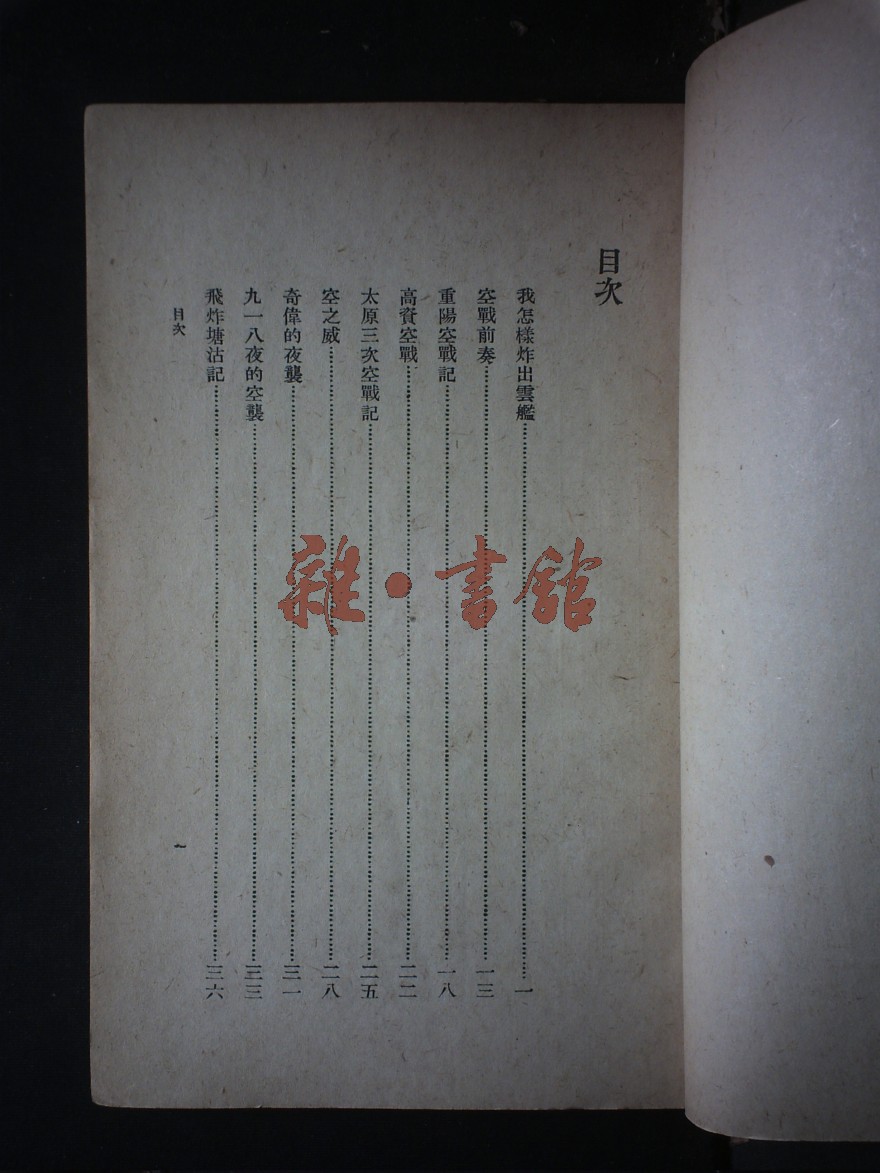 目次
我怎樣炸出雲艦……一
空戰前奏……一三
重陽空戰記……一八
高資空戰……二二
太原三次空戰記……二五
空之威……二八
奇偉的夜襲……三一
九一八夜的空襲……三三
飛炸塘沽記……三六
目次
一
雜·書館